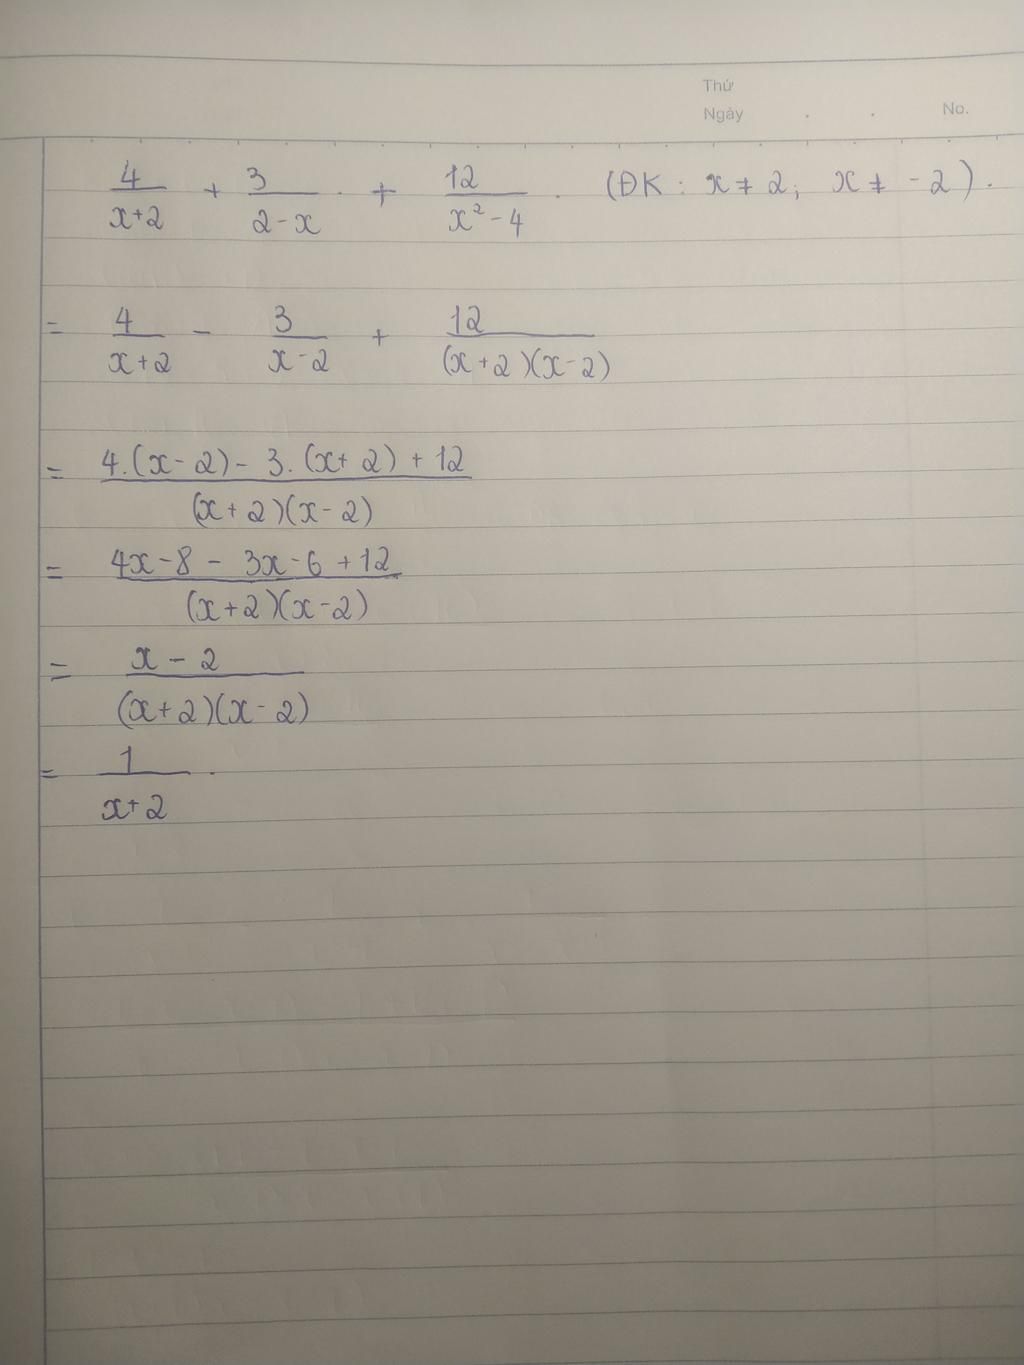 Thứ
Ngày . . No.
4/(x+2) + 3/(2-x) + 12/(x²-4) . (ĐK : x ≠ 2; x ≠ -2).
= 4/(x+2) - 3/(x-2) + 12/((x+2)(x-2))
= (4.(x-2) - 3.(x+2) + 12)/((x+2)(x-2))
= (4x-8 - 3x-6 +12)/((x+2)(x-2))
= (x-2)/((x+2)(x-2))
= 1/(x+2) .